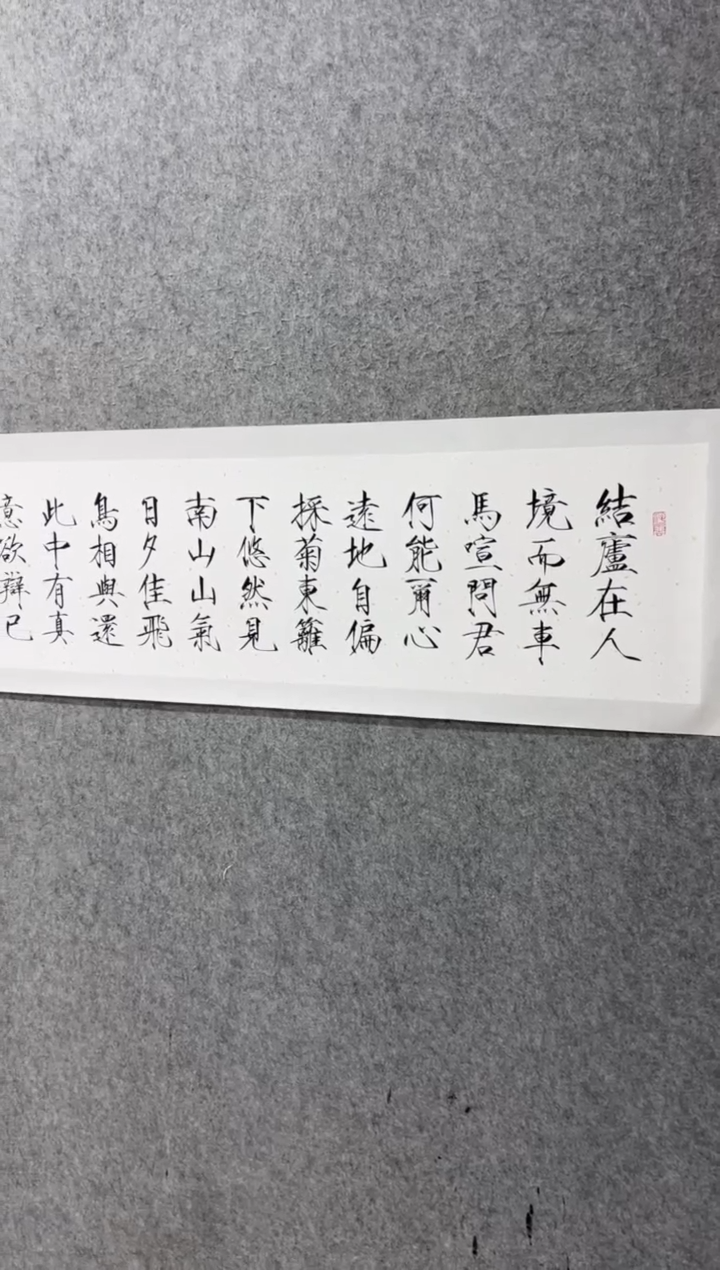 結廬在人
境而無車
馬喧問君
何能爾心
遠地自偏
採菊東籬
下悠然見
南山山氣
日夕佳飛
鳥相與還
此中有真
意欲辯已